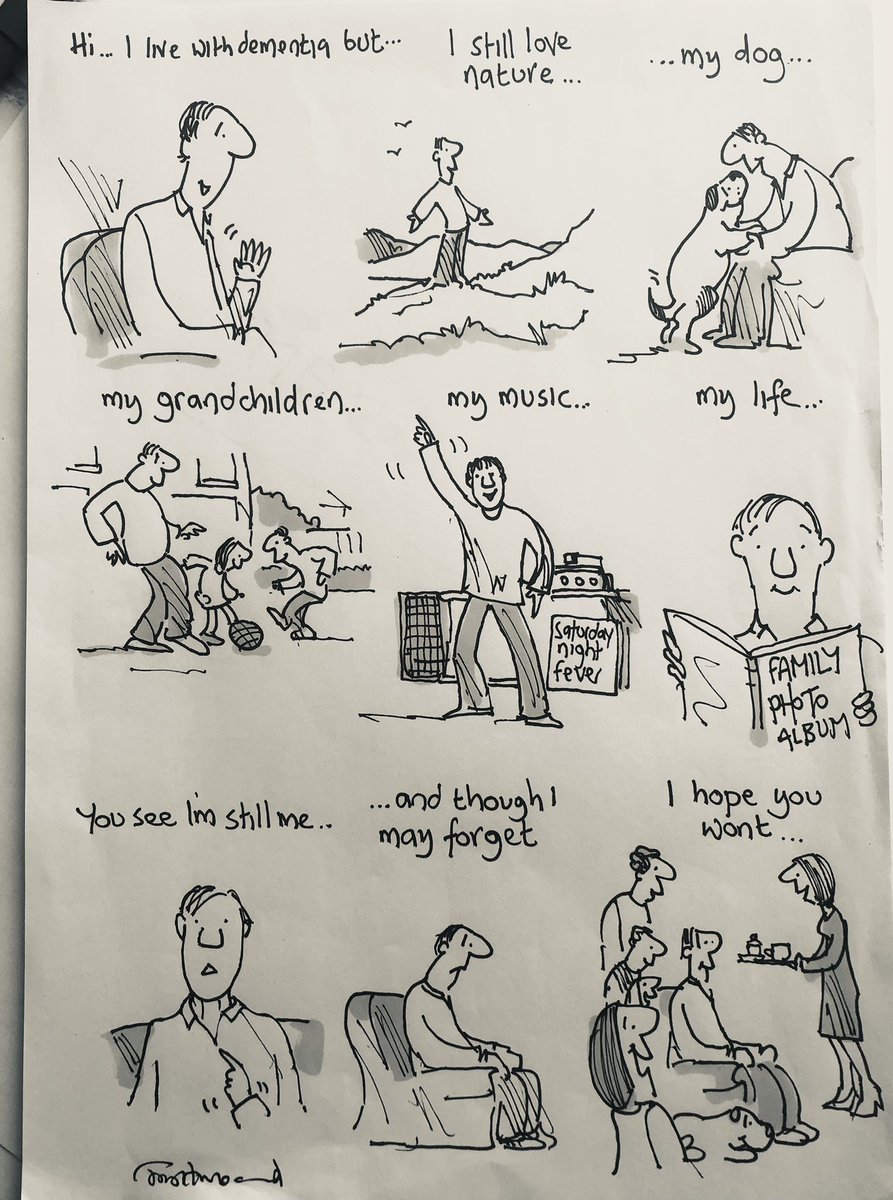 Hi... I live with dementia but...
I still love
nature...
...my dog...
my grandchildren...
my music...
Saturday
night
fever
my life...
FAMILY
PHOTO
ALBUM
You see I'm still me..
...and though I
may forget
I hope you
wont...